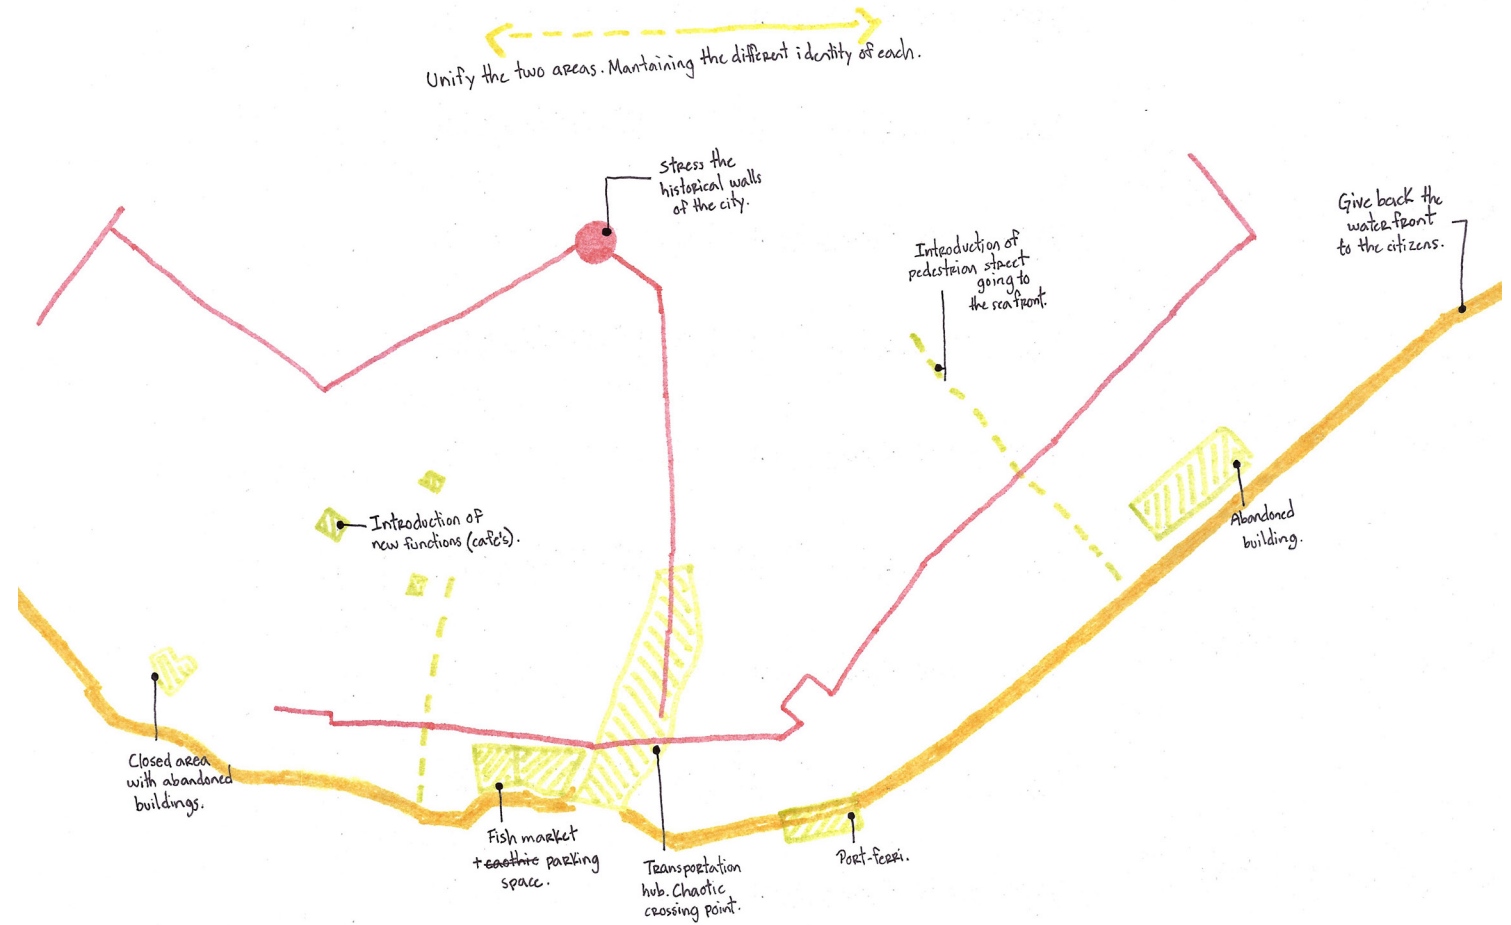 Unify the two areas. Mantaining the different identity of each.
Stress the
historical walls
of the city.
Introduction of
pedestrian street
going to
the seafront.
Give back the
waterfront
to the citizens.
Introduction of
new functions (cafe's).
Abandoned
building.
Closed area
with abandoned
buildings.
Fish market
+ caothic parking
space.
Transportation
hub. Chaotic
crossing point.
Port-ferri.